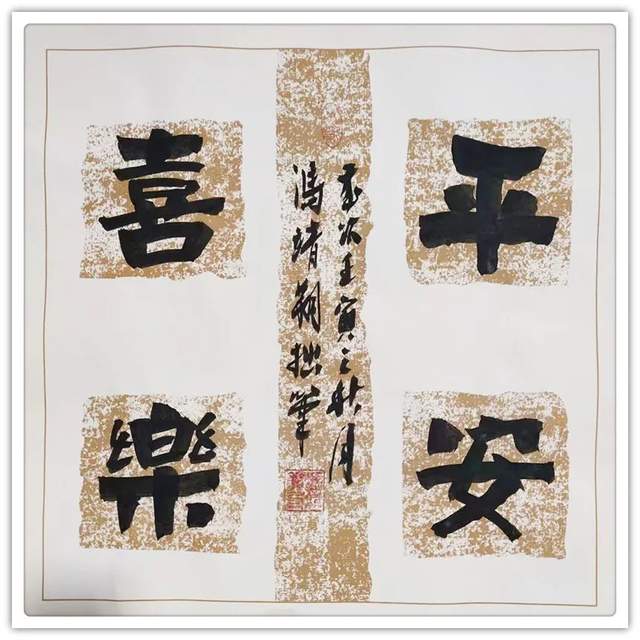 平安
喜樂
歲次壬寅之秋月
馮靖朝拙筆